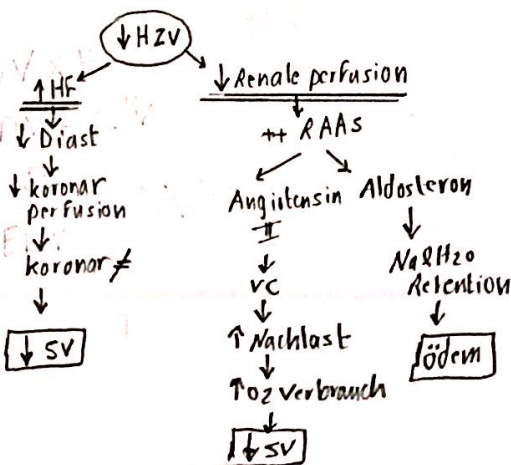 ↓ HZV
↑ HF
↓ Diast
↓ koronar
perfusion
koronar ≠
↓ SV
↓ Renale perfusion
++ RAAs
Angiotensin
II
VC
↑ Nachlast
↑ O2 verbrauch
↓ SV
Aldosteron
Na & H2O
Retention
ödem